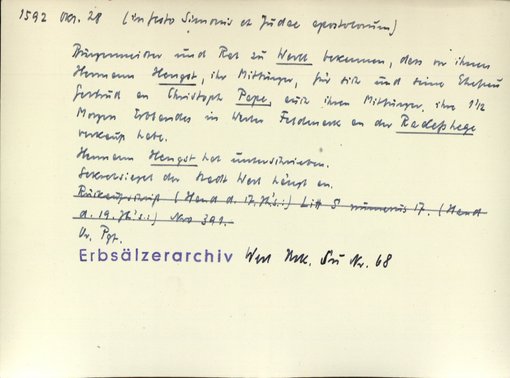 1592 Okt. 28 (in festo Simonis et Judae apostolorum)
Bürgermeister und Rat zu Werl bekennen, dass vor ihnen
Hermann Hengst, ihr Mitbürger, für sich und seine Ehefrau
Gertrud an Christoph Pape, auch ihren Mitbürger, ihre 1 1/2
Morgen Erblandes in Werler Feldmark an der Radehege
verkauft habe.
Hermann Hengst hat unterschrieben.
Sekretsiegel der Stadt Werl hängt an.
Rückaufschrift (Hand d. 17. Jh's.:) Litt S numerus 17. (Hand
d. 19. Jh's.:) Nro 391.
Or. Pgt.
Erbsälzerarchiv Werl Urk. Nr. 68